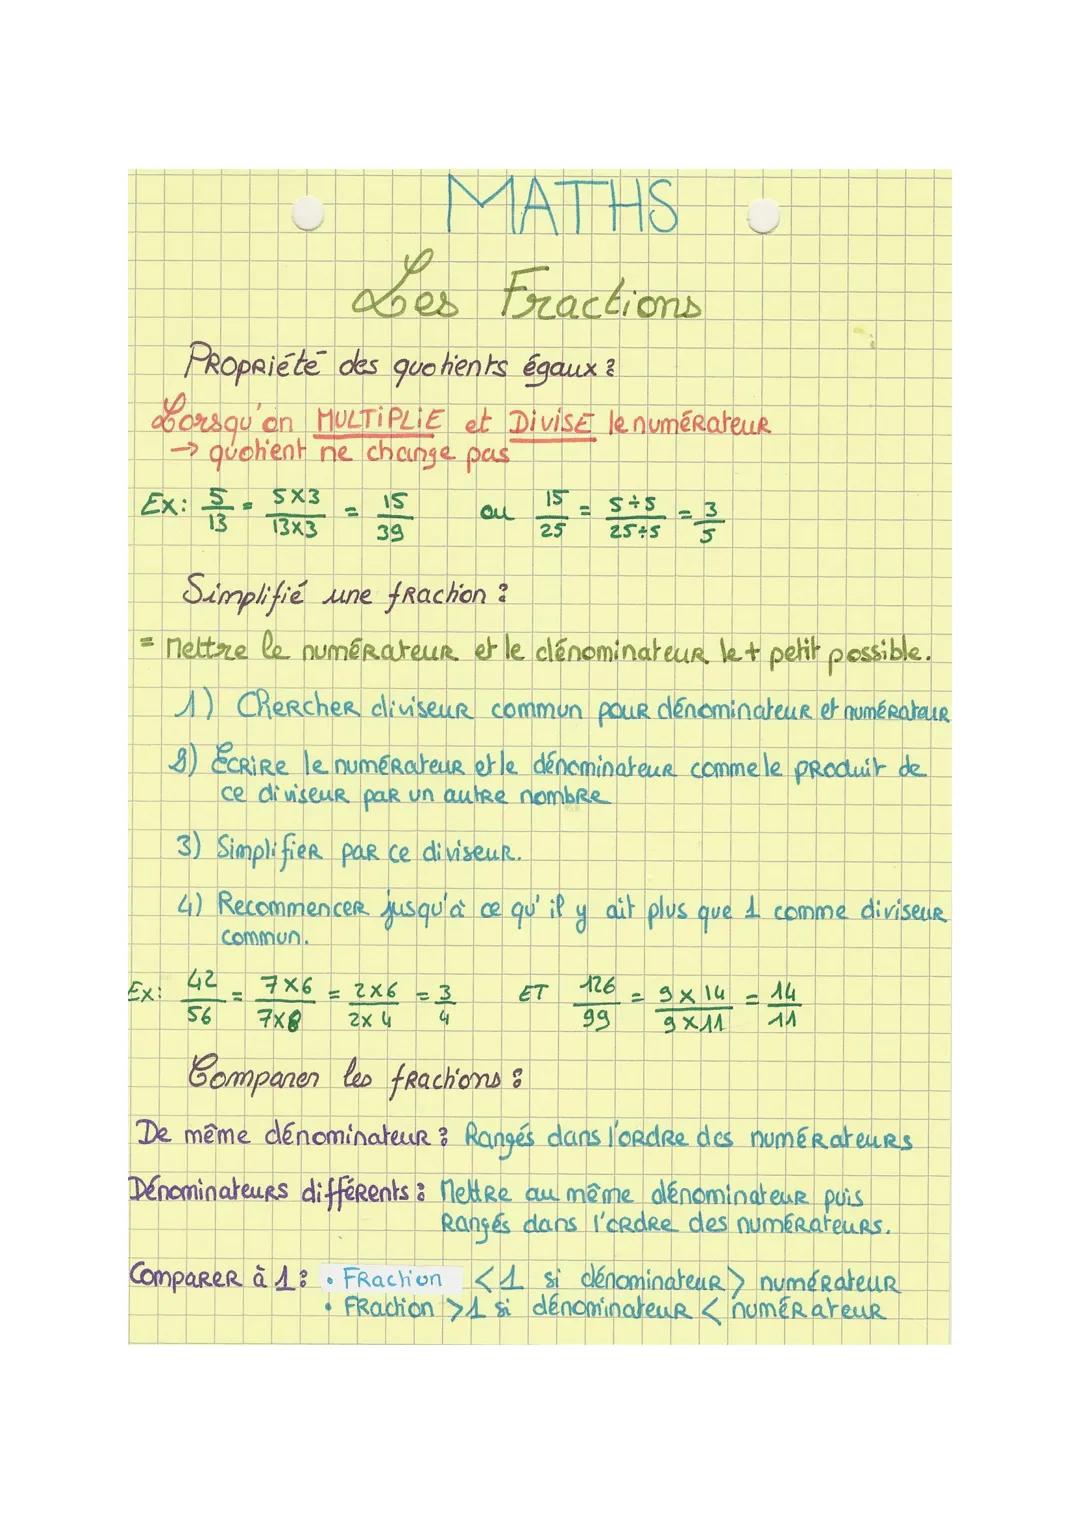 MATHS
Les Fractions
Propriété des quotients égaux :
Lorsqu'on MULTIPLIE et DIVISE le numérateur
→ quotient ne change pas
Ex: 5/13 = 5×3/13×3 = 15/39 ou 15/25 = 5÷5/25÷5 = 3/5
Simplifié une fraction :
= Mettre le numérateur et le dénominateur le + petit possible.
1) Chercher diviseur commun pour dénominateur et numérateur
2) Ecrire le numérateur et le dénominateur comme le produit de
ce diviseur par un autre nombre
3) Simplifier par ce diviseur.
4) Recommencer jusqu'à ce qu'il y ait plus que 1 comme diviseur
commun.
Ex: 42/56 = 7×6/7×8 = 2×6/2×4 = 3/4 ET 126/99 = 9×14/9×11 = 14/11
Comparer les fractions :
De même dénominateur : Rangés dans l'ordre des numérateurs
Dénominateurs différents : Mettre au même dénominateur puis
Rangés dans l'ordre des numérateurs.
Comparer à 1 : • Fraction < 1 si dénominateur > numérateur
• Fraction > 1 si dénominateur < numérateur